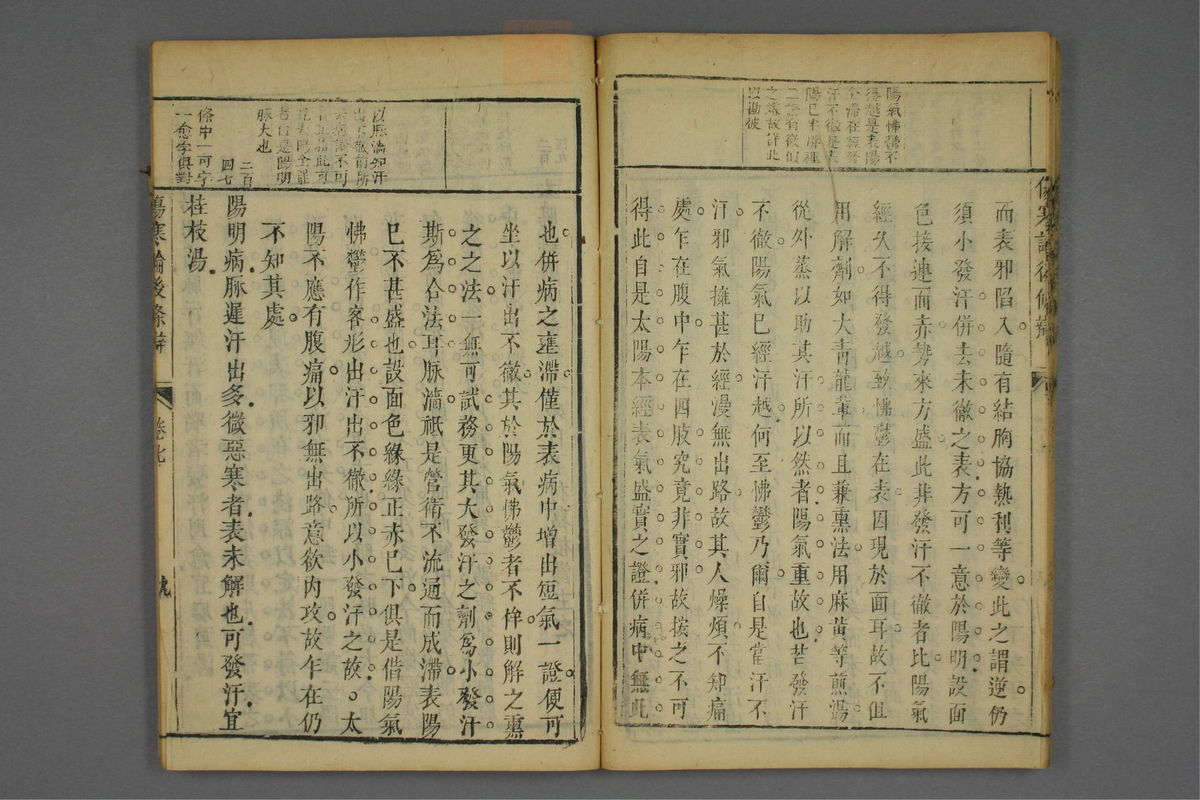 陽氣怫鬱不
得越是表陽
而表邪陷入隨有結胸協熱利等變此之謂逆仍
須小發汗併去未徹之表方可一意於陽明設面
色接連面赤勢來方盛此非發汗不徹者比陽氣
經久不得發越致怫鬱在表因現於面耳故不但
用解劑如大青龍輩而且兼熏法用麻黃等煎湯
從外蒸以助其汗所以然者陽氣重故也苦發汗
不徹陽氣巳經汗越何至怫鬱乃爾自是當汗不
汗邪氣擁甚於經漫無出路故其人燥煩不知痛
處乍在腹中乍在四肢究竟非實邪故按之不可
得此自是太陽本經表氣盛實之證併病中無此
也併病之壅滯僅於表病中增出短氣一證便可
坐以汗出不徹其於陽氣怫鬱者不侔則解之熏
之之法一無可試務更其大發汗之劑爲小發汗
斯爲合法耳脉濇祇是營衛不流通而成滯表陽
巳不甚盛也設面色緣緣正赤巳下俱是借陽氣
怫鬱作客形出汗出不徹所以小發汗之故太
陽不應有腹痛以邪無出路意欲內攻故乍在仍
不知其處
以脉濇知汗
脉大也
二百
四七
陽明病脉遲汗出多微惡寒者表未解也可發汗宜
條中一可字
一愈字與對
桂枝湯
傷寒論後條辯 卷七 九